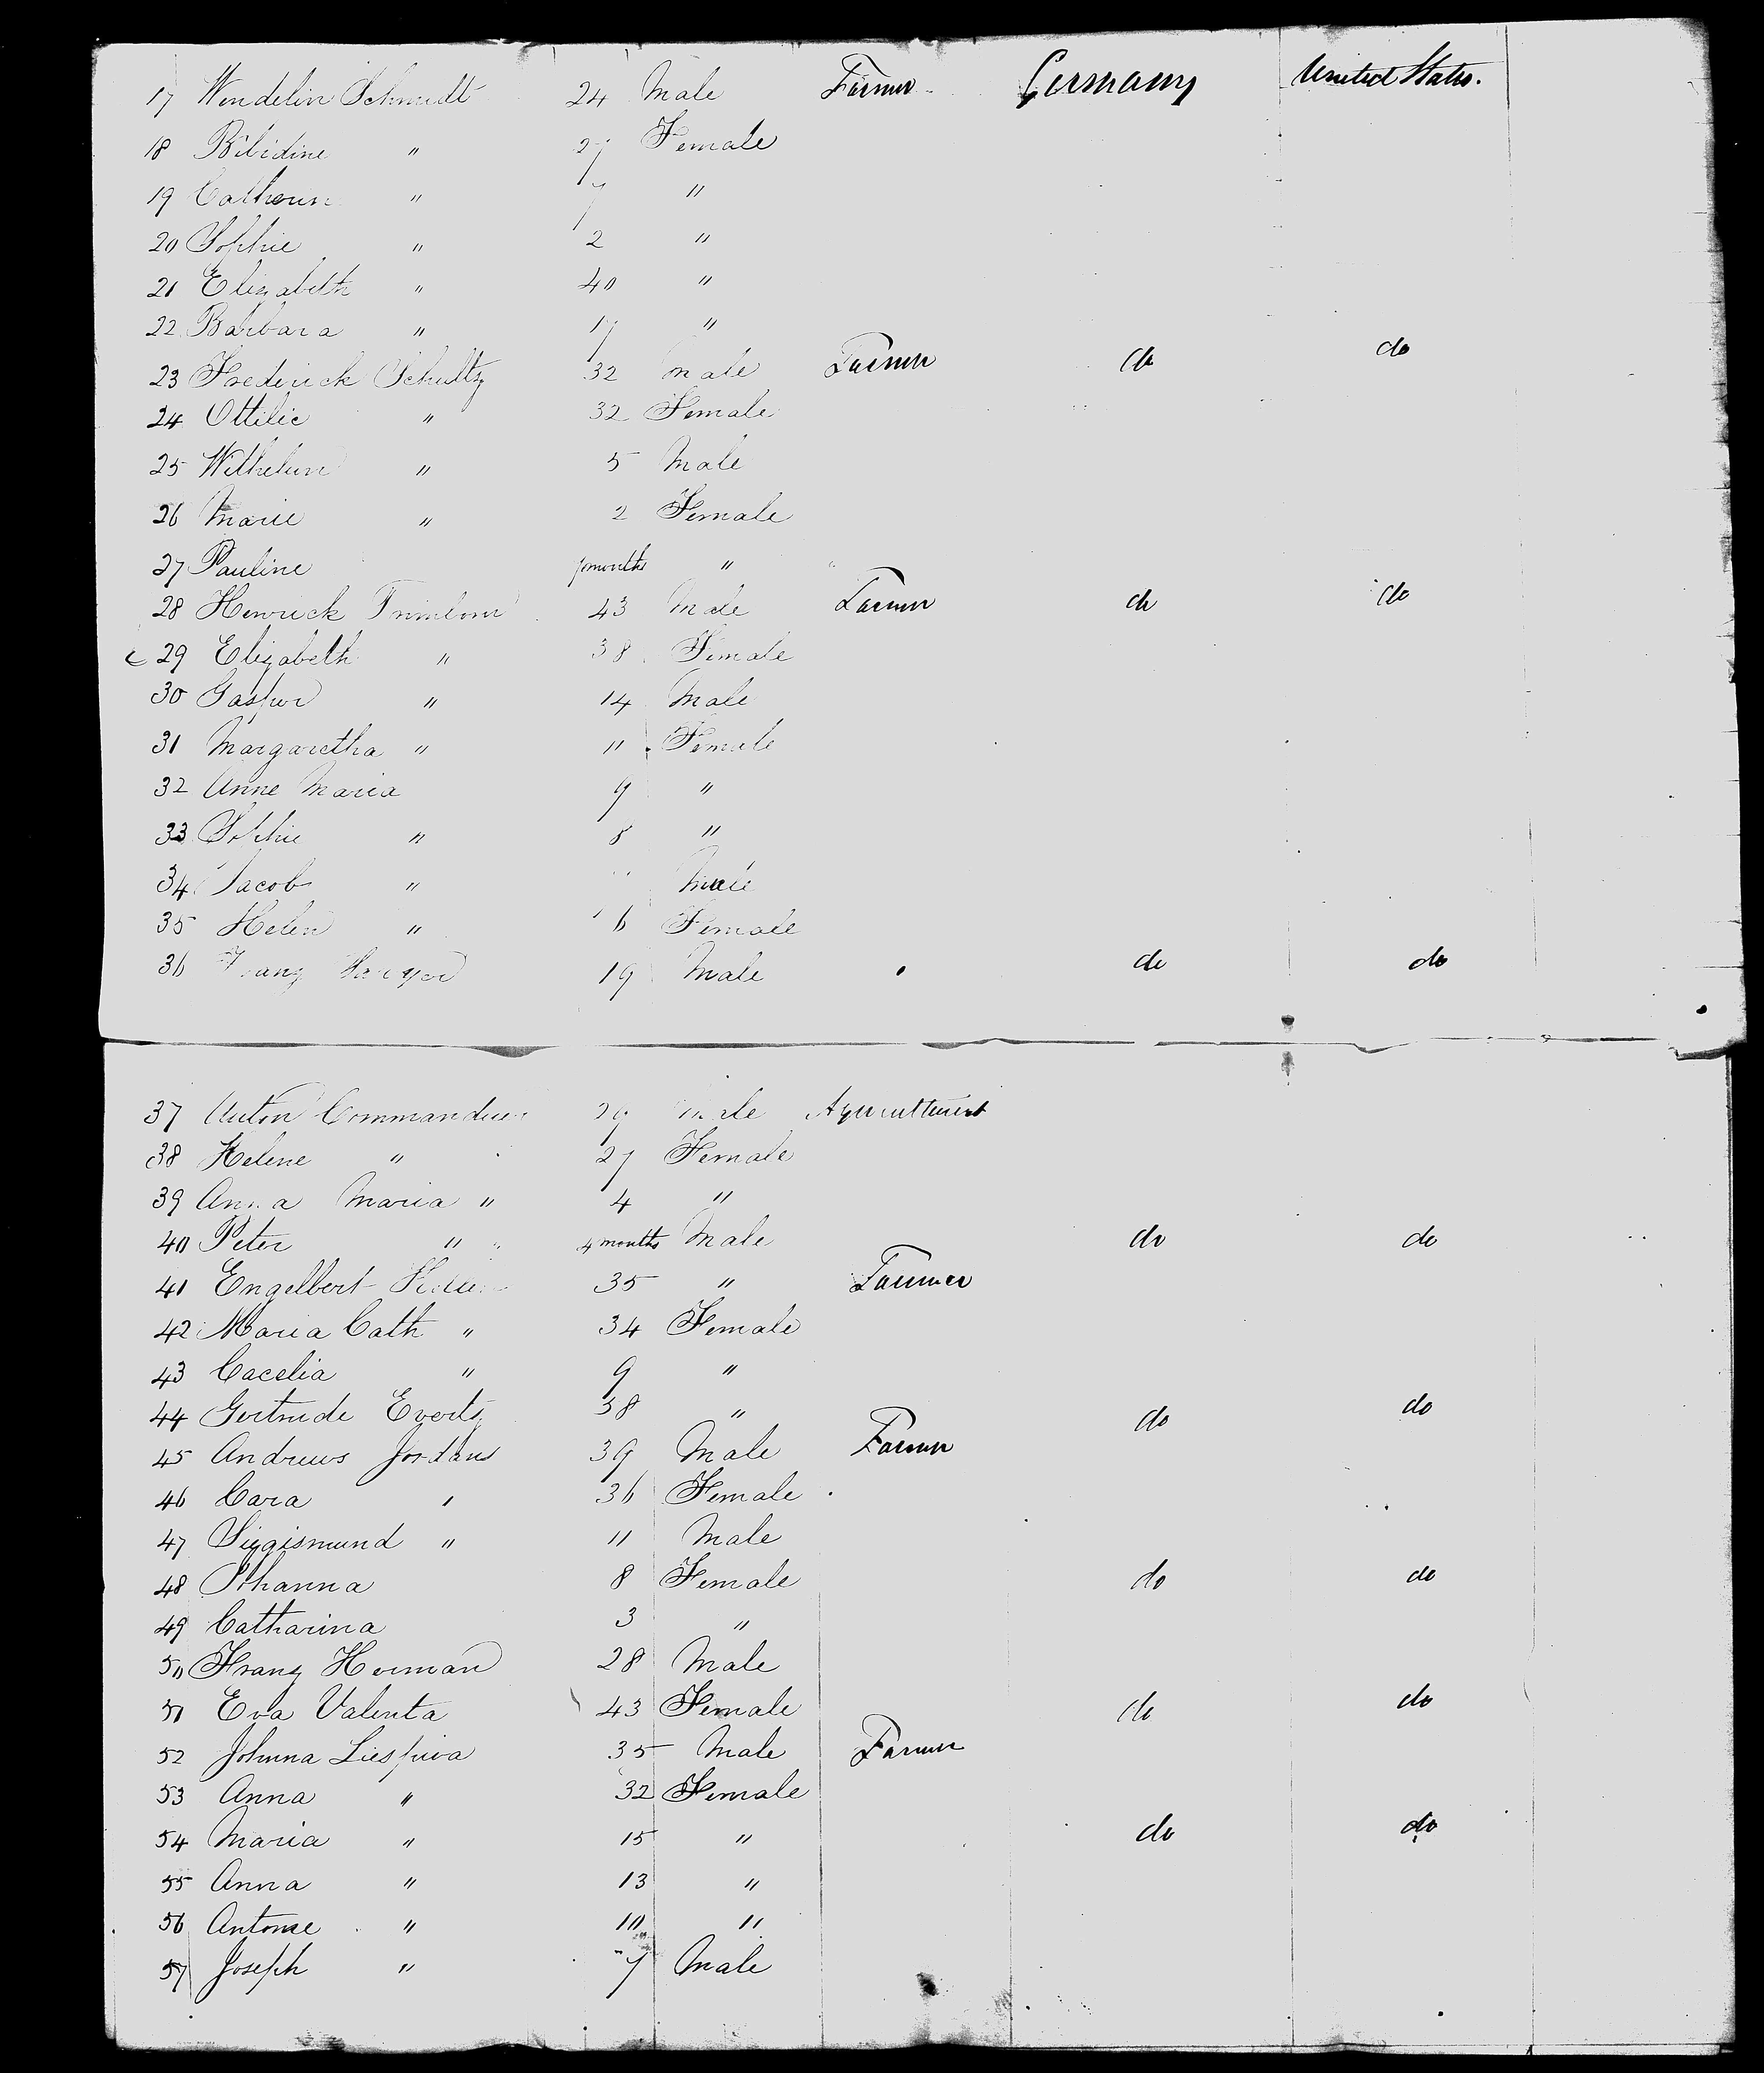 17 Wendelin Schmidt 24 Male Farmer Germany United States.
18 Bibidine " 27 Female
19 Catherin " 7 "
20 Sophie " 2 "
21 Elizabeth " 40 "
22 Barbara " 17 "
23 Frederick Schultz 32 Male Farmer do do
24 Ottilie " 32 Female
25 Wilhelm " 5 Male
26 Marie " 2 Female
27 Pauline months "
28 Henrick 43 Male Farmer do do
29 Elizabeth " 38 Female
30 Gaspar " 14 Male
31 Margaretha " 11 Female
32 Anne Maria 9 "
33 Sophie " 8 "
34 Jacob " Male
35 Helen " 6 Female
36 Franz 19 Male do do
37 Anton Male Agriculturist
38 Helene " 27 Female
39 Anna Maria " 4 "
40 Peter " 4 months Male do do
41 Engelbert 35 " Farmer
42 Maria Cath " 34 Female
43 Cacelia " 9 "
44 Gertrude Everts 38 " do do
45 Andrews Jordans 39 Male Farmer
46 Cara " 36 Female
47 Siggismund " 11 Male
48 Johanna 8 Female do do
49 Catharina 3 "
50 Franz Herman 28 Male
51 Eva Valenta 43 Female do do
52 35 Male Farmer
53 Anna " 32 Female
54 Maria " 15 " do do
55 Anna " 13 "
56 Antonie " 10 "
57 Joseph " 7 Male